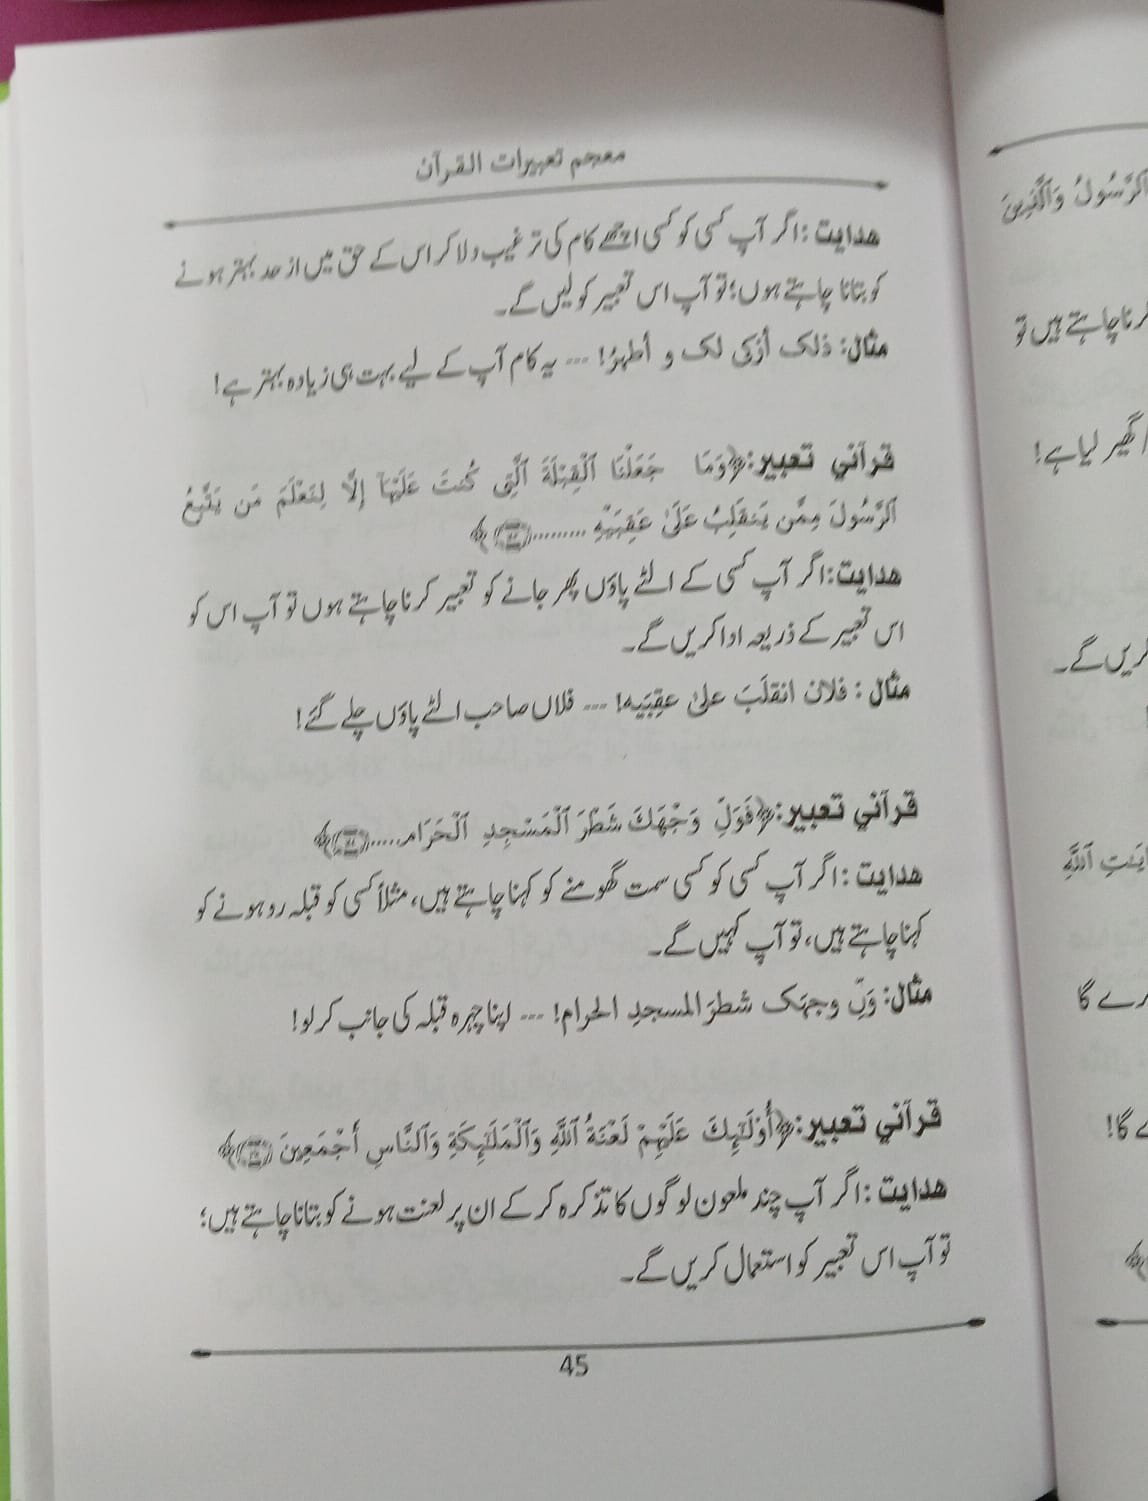 معجم تعبیرات القرآن
هدایت: اگر آپ کسی کو کسی اچھے کام کی ترغیب دلا کر اس کے حق میں از حد بہتر ہونے
کو بتانا چاہتے ہوں؛ تو آپ اس تعبیر کو لیں گے۔
مثال: ذلک أزکی لک و أطہرُ! --- یہ کام آپ کے لیے بہت ہی زیادہ بہتر ہے!
قرآني تعبیر: ﴿وَمَا جَعَلْنَا ٱلْقِبْلَةَ ٱلَّتِى كُنتَ عَلَيْهَآ إِلَّا لِنَعْلَمَ مَن يَتَّبِعُ
ٱلرَّسُولَ مِمَّن يَنقَلِبُ عَلَىٰ عَقِبَيْهِ .........﴾
هدایت: اگر آپ کسی کے الٹے پاؤں پھر جانے کو تعبیر کرنا چاہتے ہوں تو آپ اس کو
اس تعبیر کے ذریعہ ادا کریں گے۔
مثال: فلان انقلَبَ علیٰ عقِبَیه! --- فلاں صاحب الٹے پاؤں چلے گئے!
قرآني تعبیر: ﴿فَوَلِّ وَجْهَكَ شَطْرَ ٱلْمَسْجِدِ ٱلْحَرَامِ.....﴾
هدایت: اگر آپ کسی کو کسی سمت گھومنے کو کہنا چاہتے ہیں، مثلاً کسی کو قبلہ رو ہونے کو
کہنا چاہتے ہیں، تو آپ کہیں گے۔
مثال: وَلِّ وجہَک شطرَ المسجدِ الحرام! --- اپنا چہرہ قبلہ کی جانب کر لو!
قرآني تعبیر: ﴿أُو۟لَـٰٓئِكَ عَلَيْهِمْ لَعْنَةُ ٱللَّهِ وَٱلْمَلَـٰٓئِكَةِ وَٱلنَّاسِ أَجْمَعِينَ﴾
هدایت: اگر آپ چند ملعون لوگوں کا تذکرہ کر کے ان پر لعنت ہونے کو بتانا چاہتے ہیں؛
تو آپ اس تعبیر کو استعمال کریں گے۔
45
ٱلرَّسُولُ وَٱلَّذِينَ
کرنا چاہتے ہیں تو
گھیر لیا ہے!
کریں گے۔
ٱللَّهِ
گا
گا!